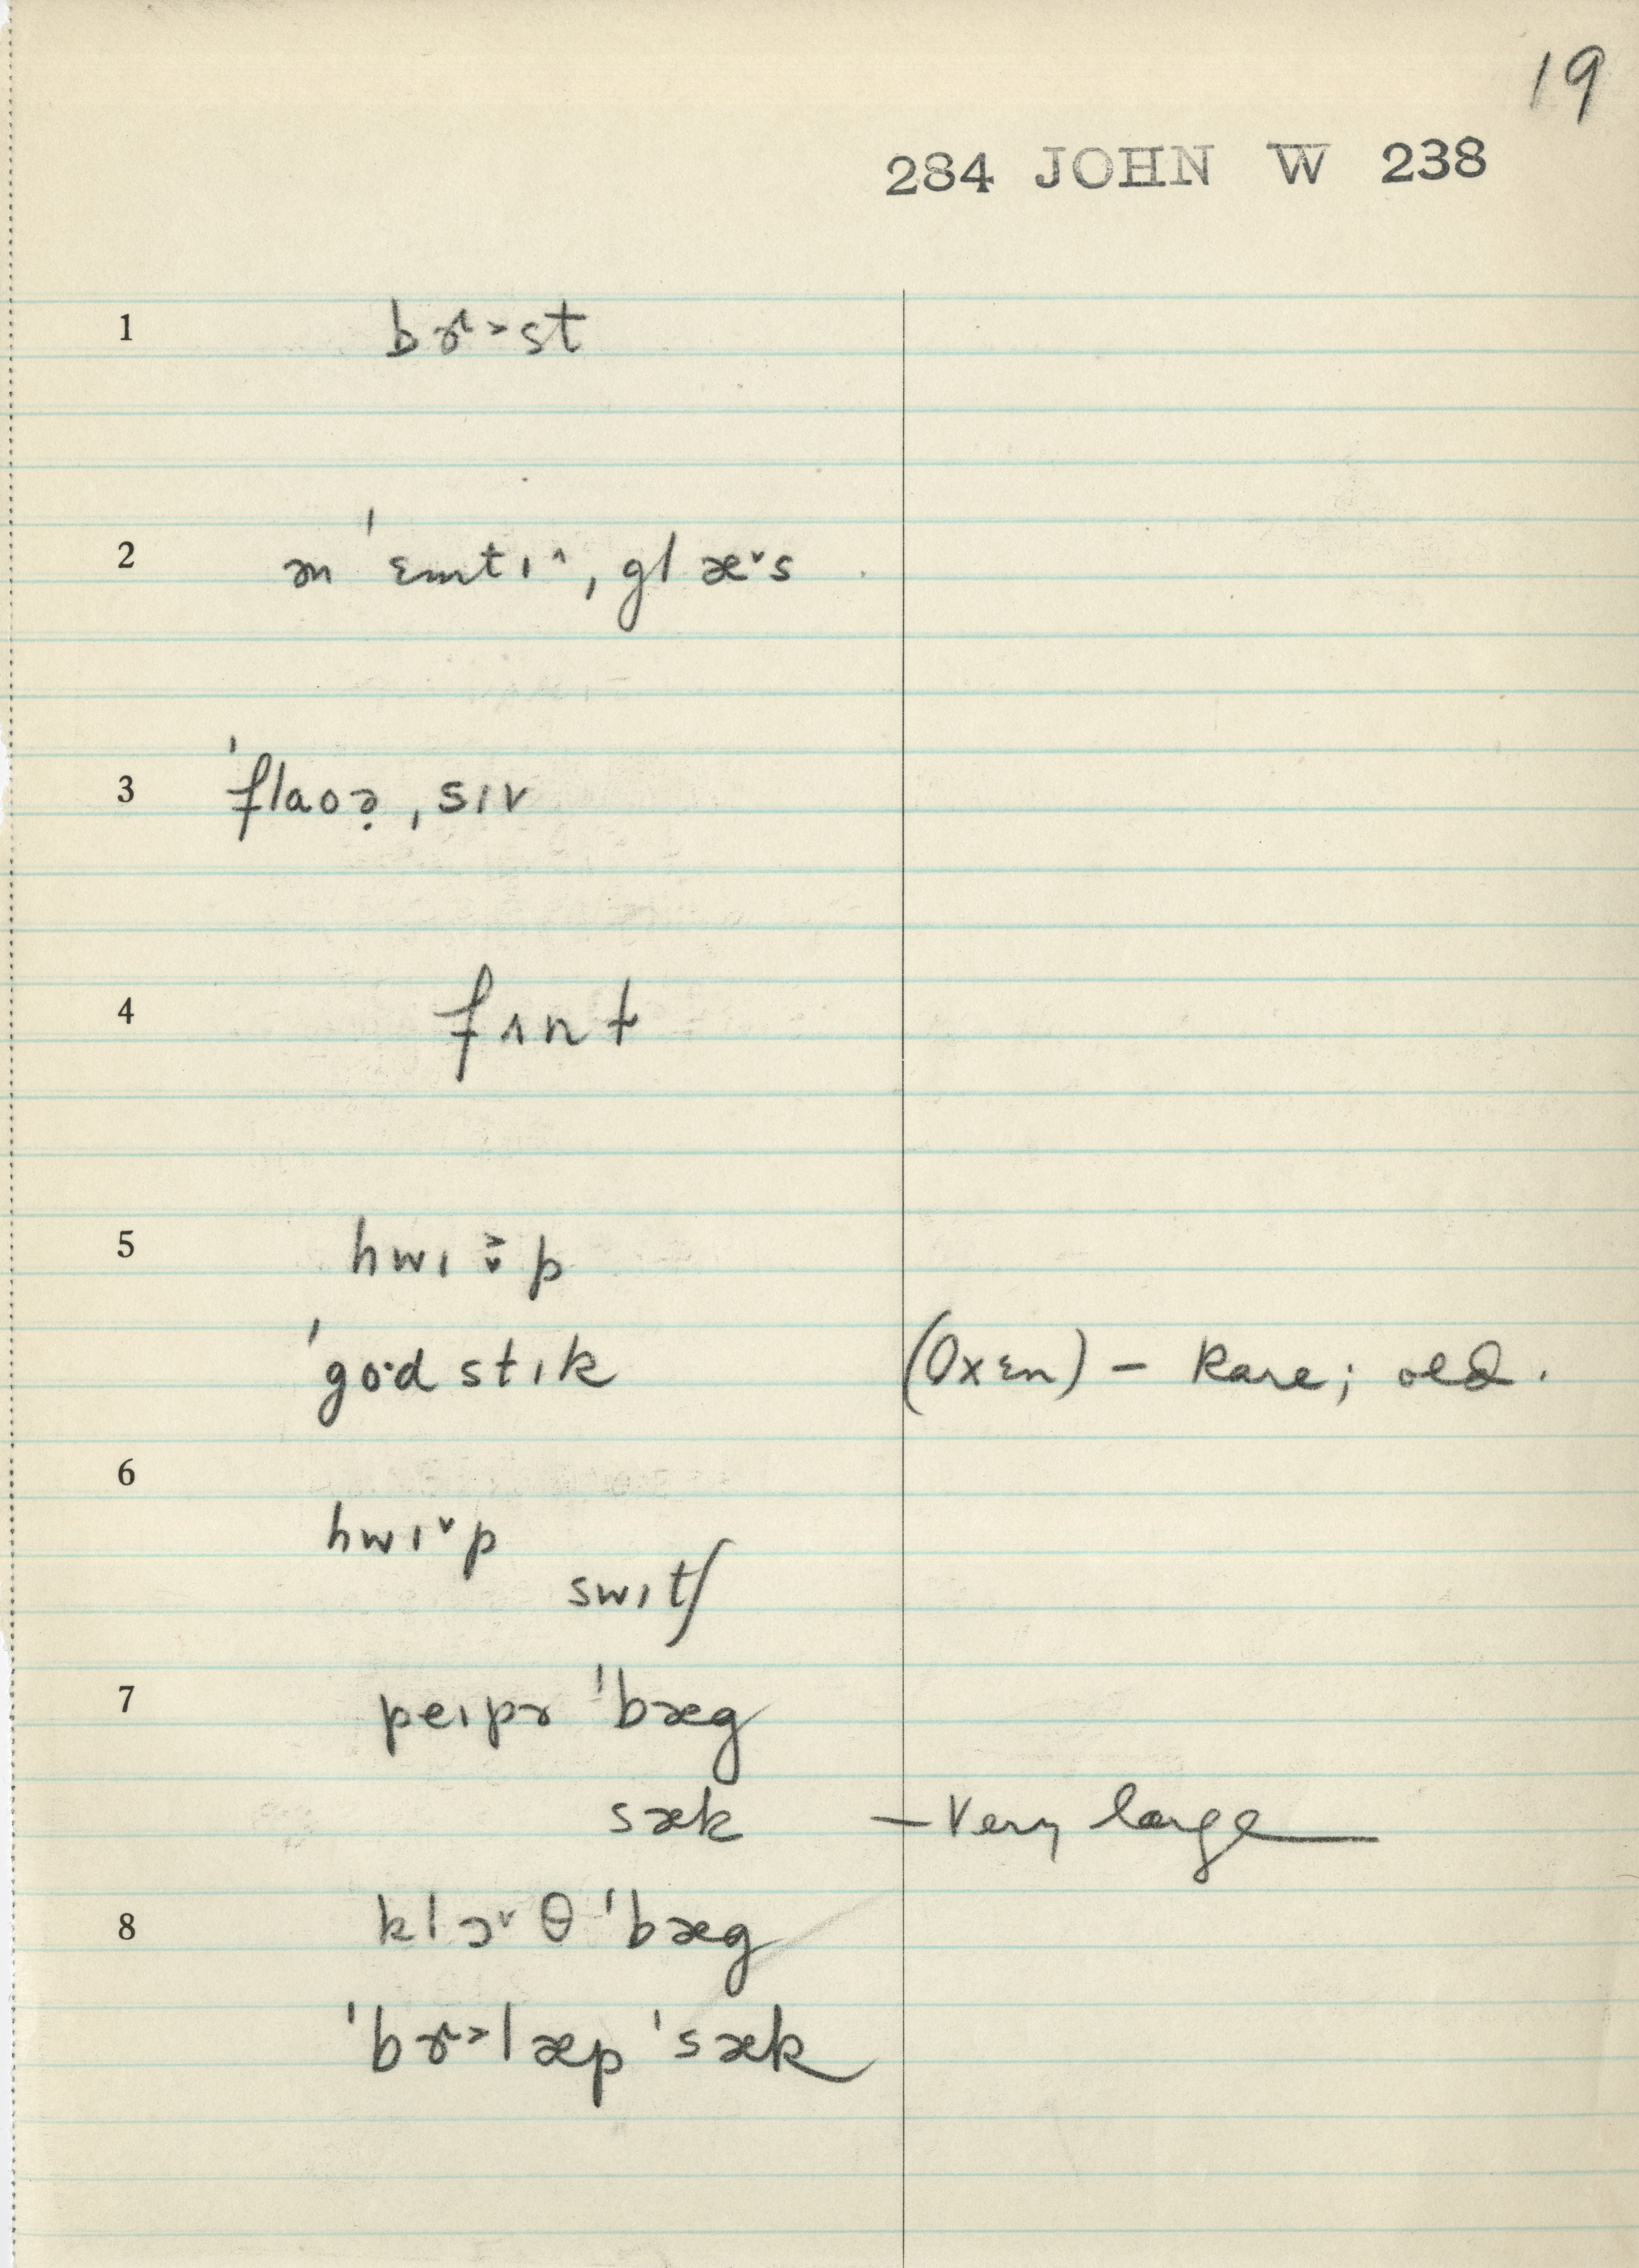 19
284 JOHN W 238
1 bɝ˃st
2 ən ˈɛmtɪ˄ˌglæ˅s
3 ˈflaoə̣ˌsɪv
4 fʌnt
5 hwɪə̌p
ˈgo·dstɪk (Oxɛn) – Rare; old.
6
hwɪ˅p
swɪtʃ
7 peɪpɚ ˈbæg
sæk – Very large
8 klɔ˅θ ˈbæg
ˈbɝ˃læp ˈsæk